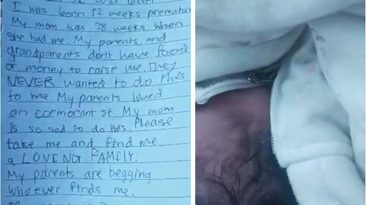 I was born 12 weeks premature
My mom was 28 weeks when
she had me. My parents and
grandparents don't have food
or money to raise me. They
NEVER wanted to do this
to me My parents lived
on cormorant st. My mom
is so sad to do this. Please
take me and find me
a LOVING FAMILY.
My parents are begging
whoever finds me.